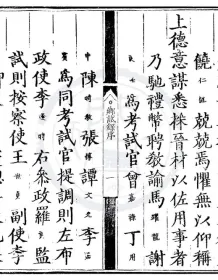 饒仁侃兢兢焉懼無以仰稱
上德意謀悉採晉材以佐用事者
乃馳禮幣聘教諭馬曜龍謝
為考試官曾嘉祿丁用
鄉試錄序
中陳張譚文光李
賓為同考試官提調則左布
政使李右參政羅監
試則按察使王副使李